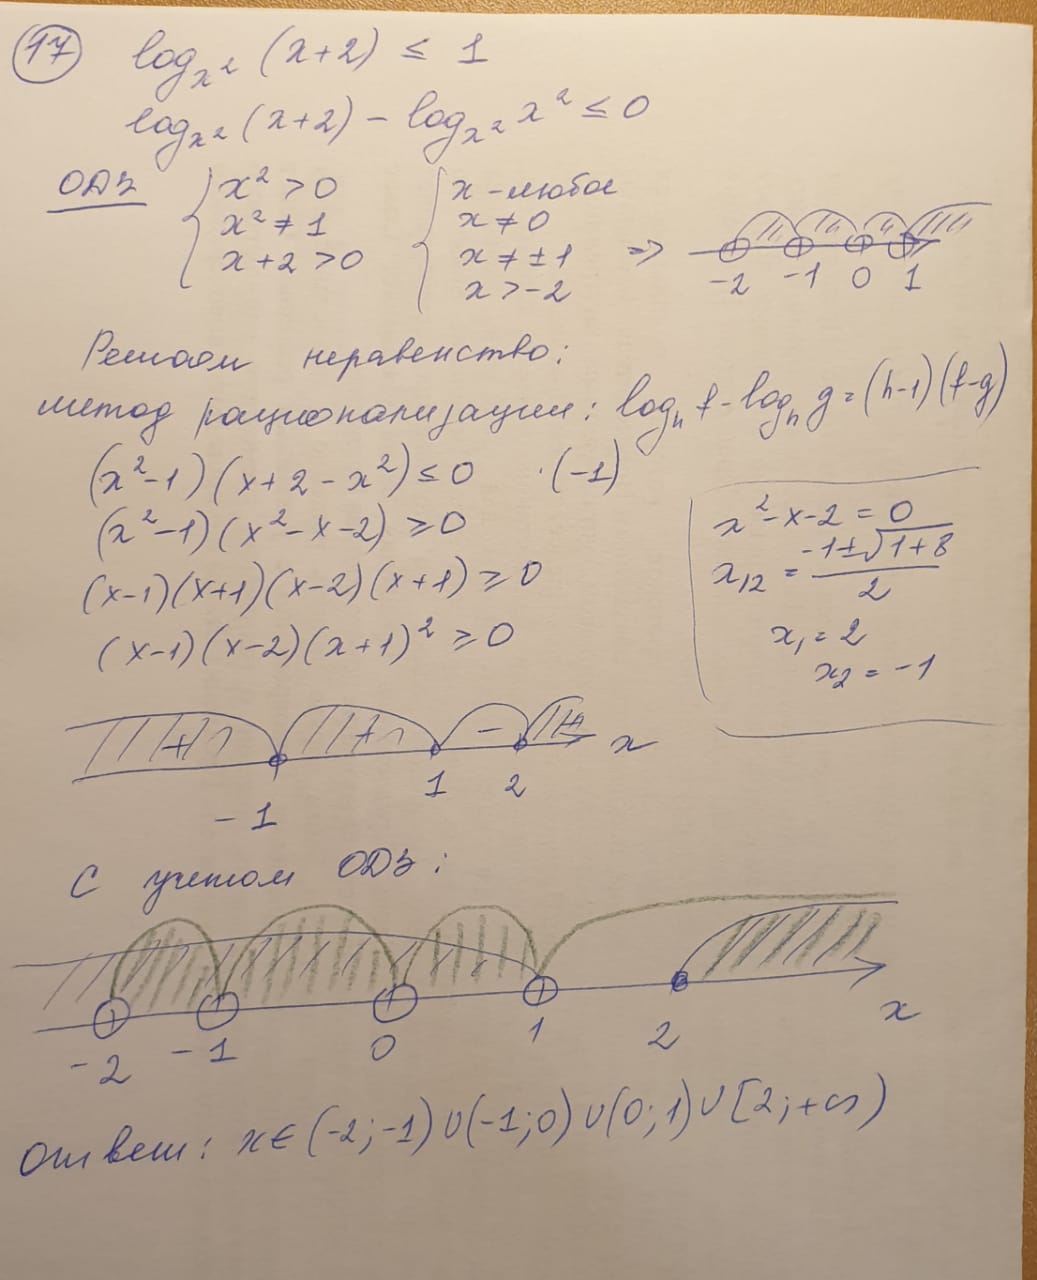 17 log_{x²} (x+2) ≤ 1
log_{x²} (x+2) − log_{x²} x² ≤ 0
ОДЗ { x² > 0 { x − любое
x² ≠ 1 x ≠ 0
x+2 > 0 x ≠ ±1 =>
x > −2
−2 −1 0 1
Решаем неравенство:
метод рационализации: log_h f − log_h g = (h−1)(f−g)
(x²−1)(x+2−x²) ≤ 0 ·(−1)
(x²−1)(x²−x−2) ≥ 0
(x−1)(x+1)(x−2)(x+1) ≥ 0
(x−1)(x−2)(x+1)² ≥ 0
x²−x−2 = 0
x₁,₂ = (−1±√(1+8))/2
x₁ = 2
x₂ = −1
+ + − + x
−1 1 2
С учетом ОДЗ:
−2 −1 0 1 2 x
Ответ: x ∈ (−2;−1)∪(−1;0)∪(0;1)∪[2;+∞)